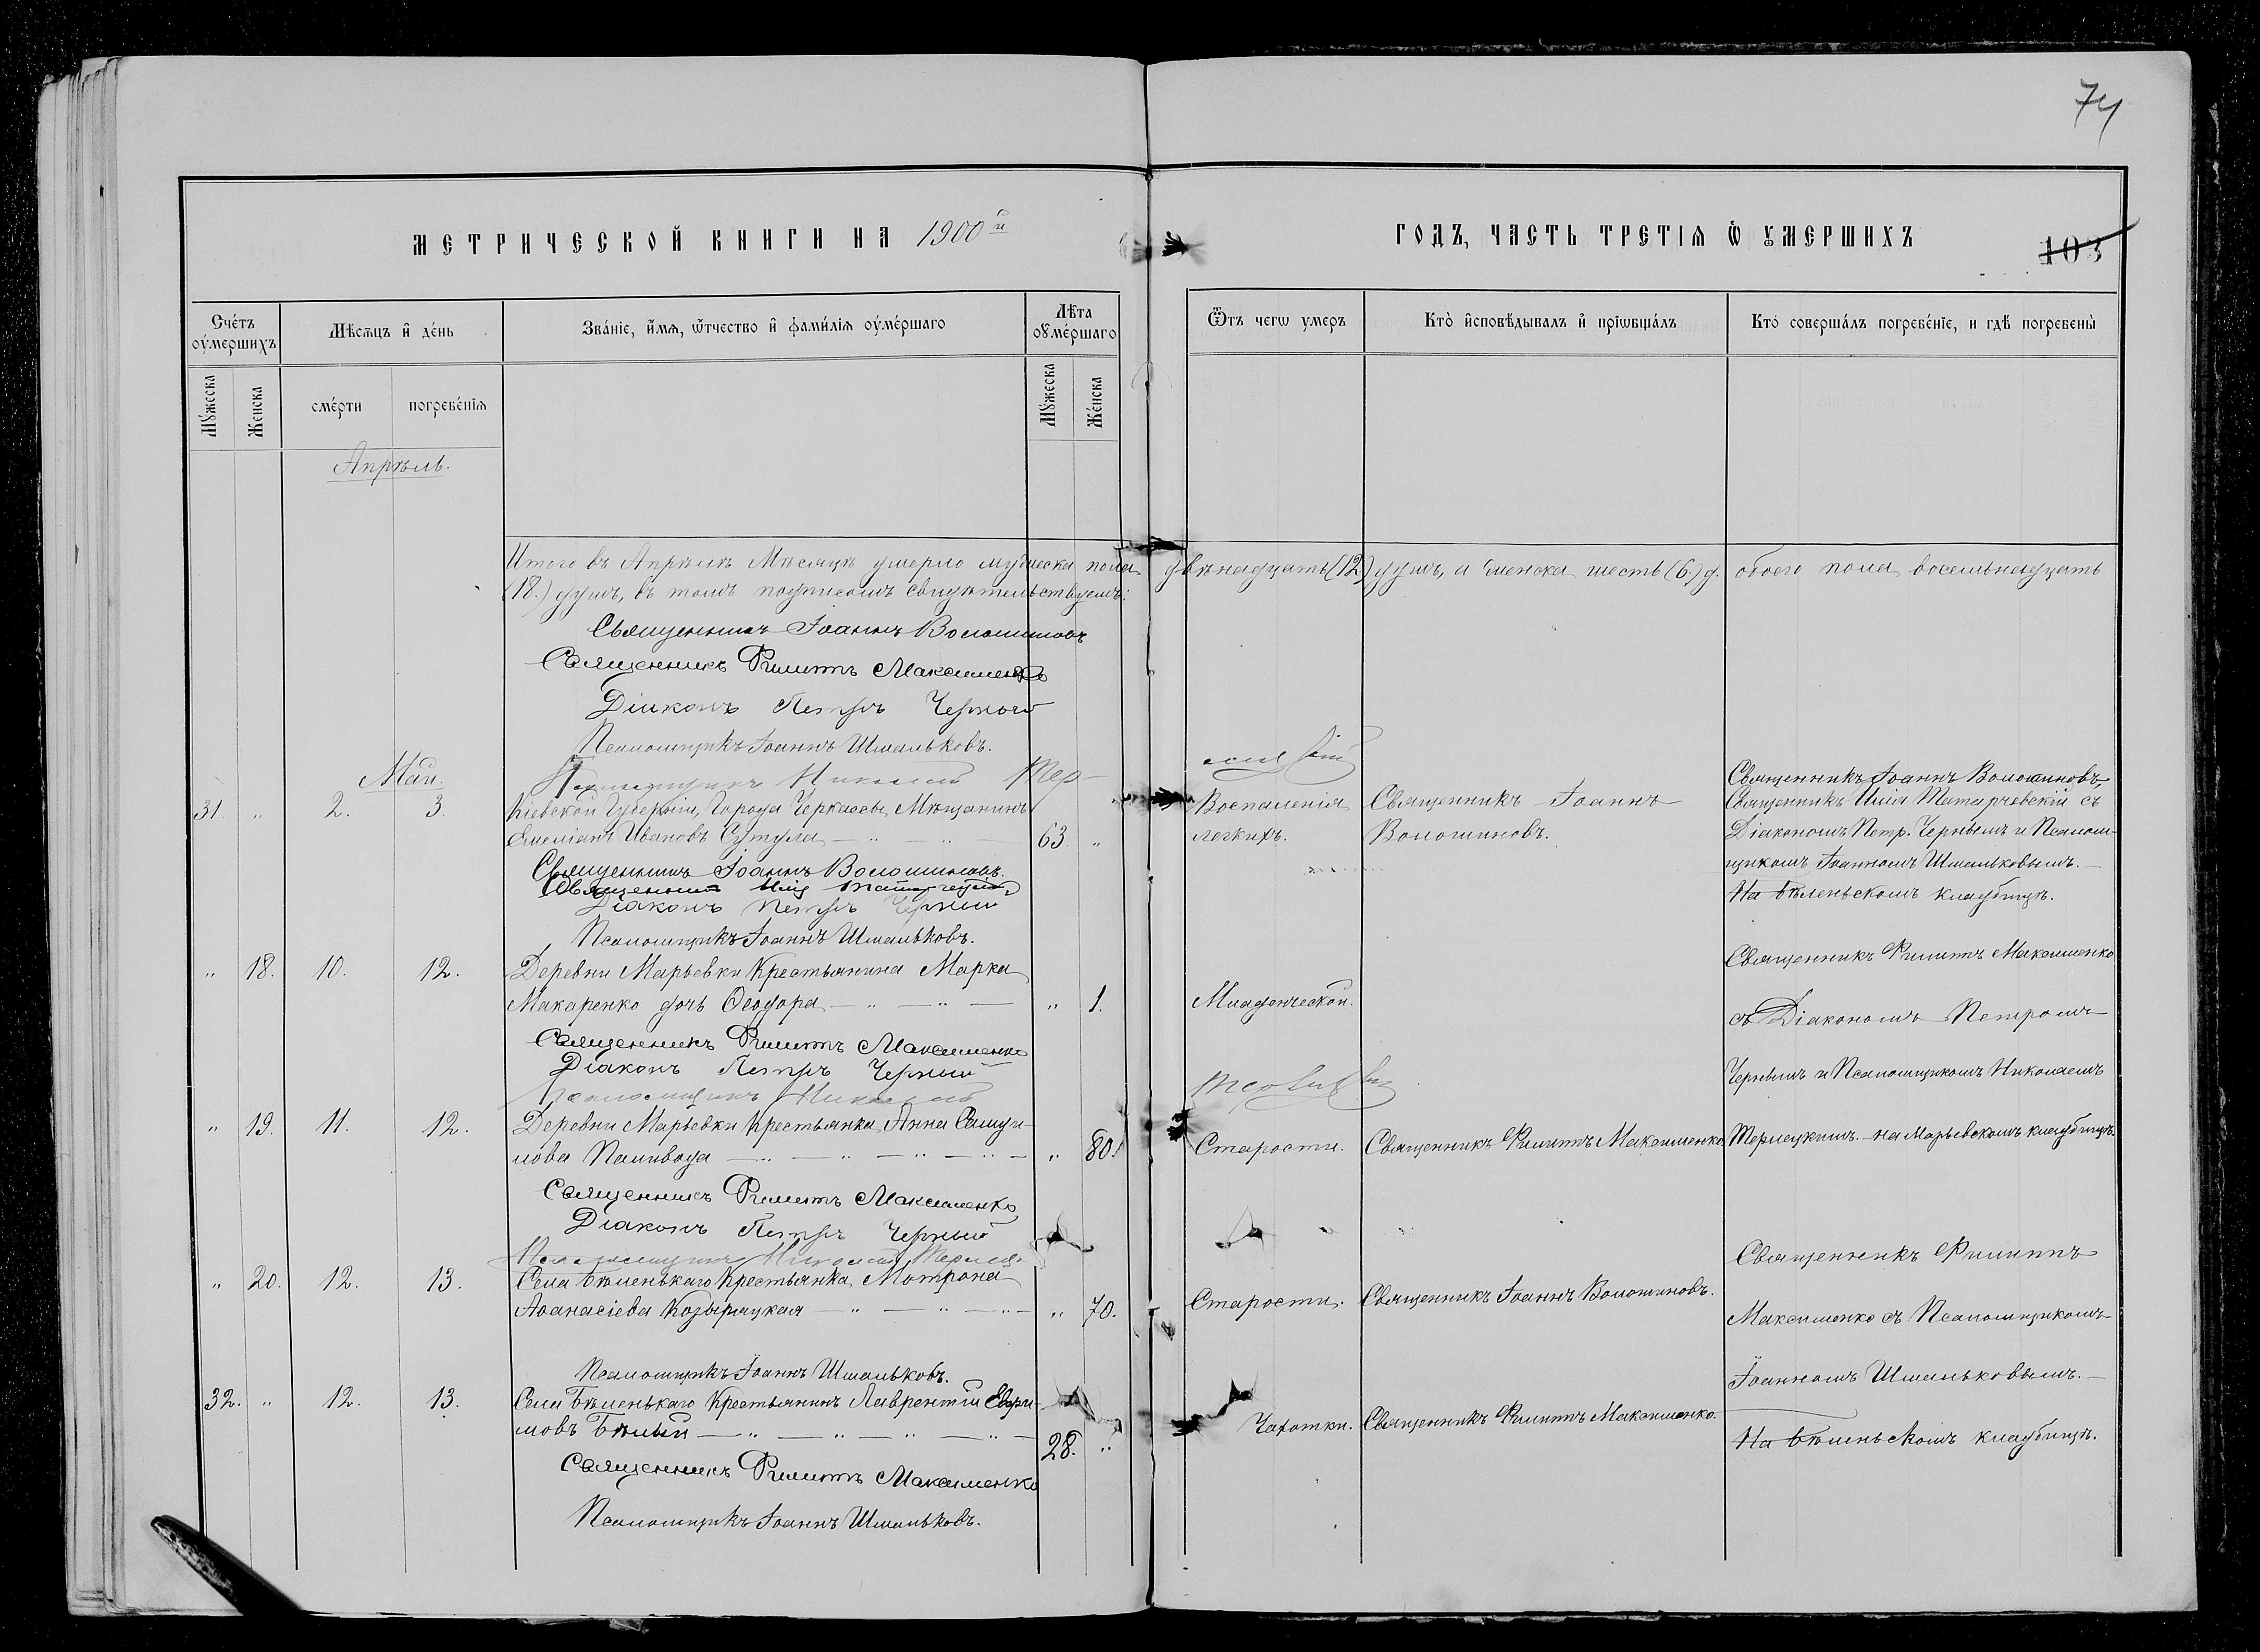 74
МЕТРИЧЕСКОЙ КНИГИ НА 1900й
ГОДЪ, ЧАСТЬ ТРЕТІѦ Ѡ УМЕРШИХЪ
103
Счетъ оумершихъ
Мѣсяцъ и день
Званіе, имя, ѿтчество и фамилія оумершаго
Лѣта оумершаго
Ѿтъ чегѡ умеръ
Кто исповѣдывалъ и пріѡбщалъ
Кто совершалъ погребеніе, и гдѣ погребены
Мужеска
Женска
смерти
погребенія
Мужеска
Женска
Апрѣль.
Итого въ Апрѣлѣ Мѣсяцѣ умерло мужеска пола двѣнадцать (12) душъ, а женска шесть (6) д. обоего пола восемьнадцать
(18.) душъ, въ томъ подписомъ свидѣтельствуемъ:
Священникъ Іоаннъ Волошиновъ
Священникъ Филиппъ Максименко
Діаконъ Петръ Черный
Псаломщикъ Іоаннъ Шмальковъ.
Псаломщикъ Николай Тер
Май.
31. " 2. 3. Кіевской Губерніи, Города Черкассы, Мѣщанинъ
Емеліанъ Ивановъ Сутула 63. "
Воспаленія
легкихъ.
Священникъ Іоаннъ
Волошиновъ.
Священникъ Іоаннъ Волошиновъ,
Священникъ Илія Татарчевскій съ
Діакономъ Петр. Чернымъ и Псалом-
щикомъ Іоанномъ Шмальковымъ.
На Бѣленьскомъ кладбищѣ.
Священникъ Іоаннъ Волошиновъ.
Священникъ Илія
Діаконъ Петръ Черный
Псаломщикъ Іоаннъ Шмальковъ.
" 18. 10. 12. Деревни Марьевки Крестьянина Марка
Макаренко дочь Ѳеодора " 1.
Младенческой.
Священникъ Филиппъ Максименко
съ Діакономъ Петромъ
Чернымъ и Псаломщикомъ Николаемъ
Терлецкимъ. на Марьевскомъ кладбищѣ.
Священникъ Филиппъ Максименко
Діаконъ Петръ Черный
Псаломщикъ Николай
" 19. 11. 12. Деревни Марьевки Крестьянка Анна Самуи-
лова Паливода " 80.
Старости.
Священникъ Филиппъ Максименко
Священникъ Филиппъ Максименко
Діаконъ Петръ Черный
Псаломщикъ Николай
" 20. 12. 13. Села Бѣленькаго Крестьянка Мотрона
Аѳанасіева Козырицкая " 70.
Старости.
Священникъ Іоаннъ Волошиновъ.
Священникъ Филиппъ
Максименко съ Псаломщикомъ
Іоанномъ Шмальковымъ.
На Бѣленьскомъ кладбищѣ.
Псаломщикъ Іоаннъ Шмальковъ.
32. " 12. 13. Села Бѣленькаго Крестьянинъ Лаврентій Евфи-
мовъ Бѣлый 28. "
Чахотки.
Священникъ Филиппъ Максименко.
Священникъ Филиппъ Максименко
Псаломщикъ Іоаннъ Шмальковъ.